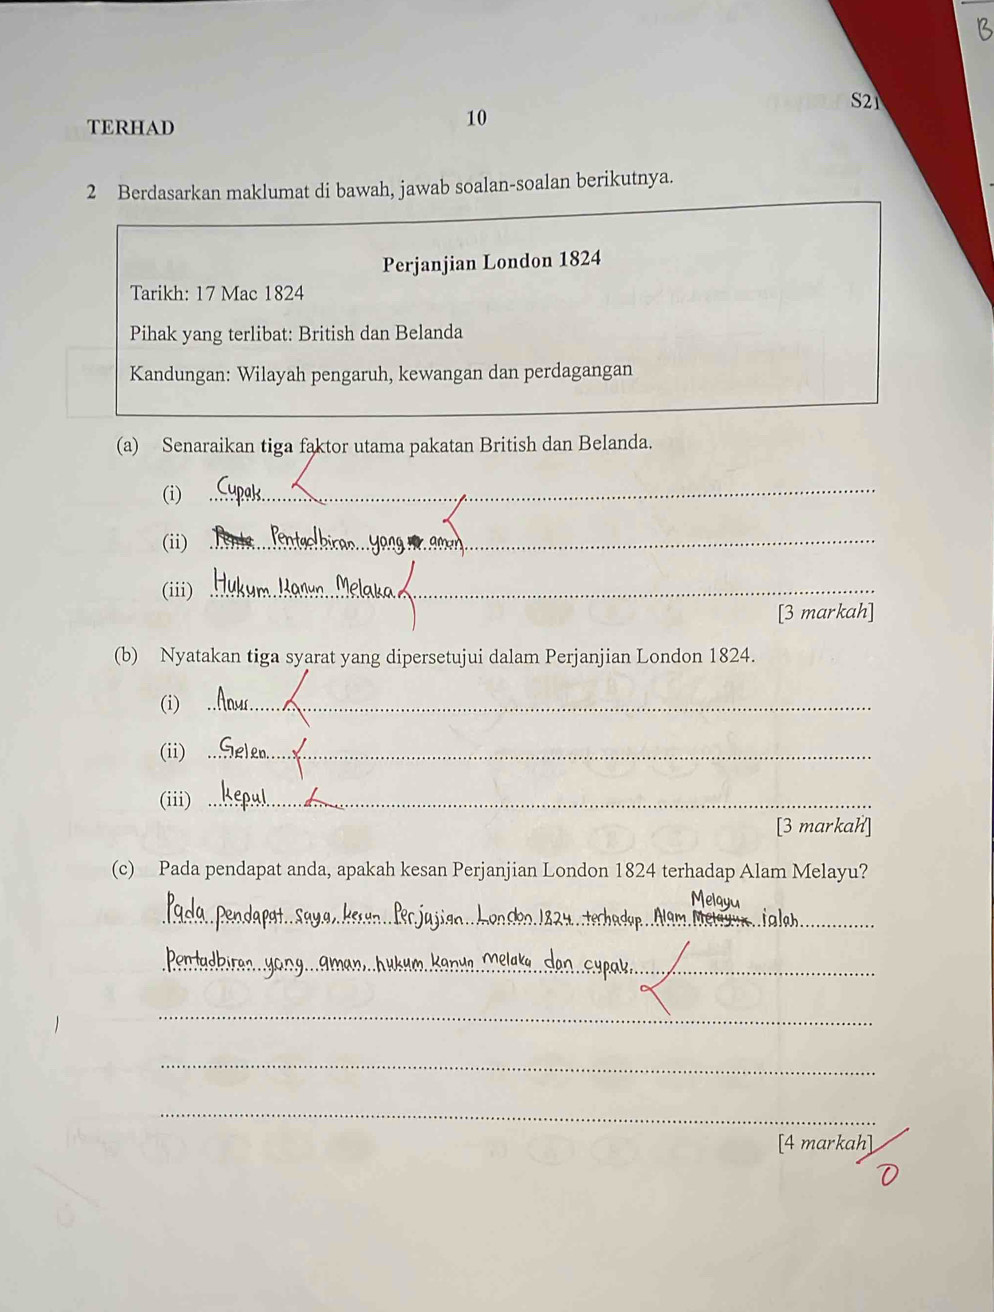 B
S21
TERHAD
10
2 Berdasarkan maklumat di bawah, jawab soalan-soalan berikutnya.
Perjanjian London 1824
Tarikh: 17 Mac 1824
Pihak yang terlibat: British dan Belanda
Kandungan: Wilayah pengaruh, kewangan dan perdagangan
(a) Senaraikan tiga faktor utama pakatan British dan Belanda.
(i) Cupak
(ii) Pentadbiran yang aman
(iii) Hukum Kanun Melaka
[3 markah]
(b) Nyatakan tiga syarat yang dipersetujui dalam Perjanjian London 1824.
(i) Anus
(ii) Gelen
(iii) kepul
[3 markah]
(c) Pada pendapat anda, apakah kesan Perjanjian London 1824 terhadap Alam Melayu?
Pada pendapat saya, kesan Perjajian London 1824 terhadap Alam Melayu ialah
Pentadbiran yang aman, hukum kanun melaka dan cupak.
[4 markah]
0